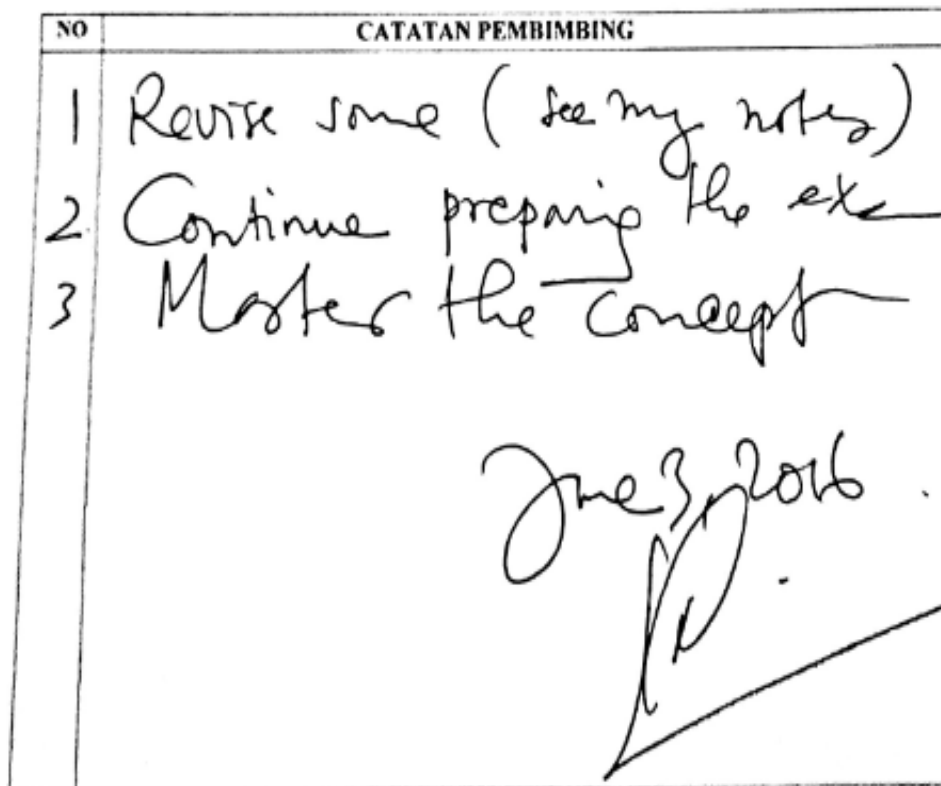 NO CATATAN PEMBIMBING
1 Revise some (see my notes)
2. Continue preparing the
3 Master the concept
June 3, 2016